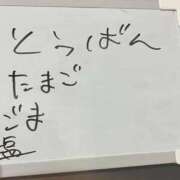 とうばん
たまご
ごま
塩